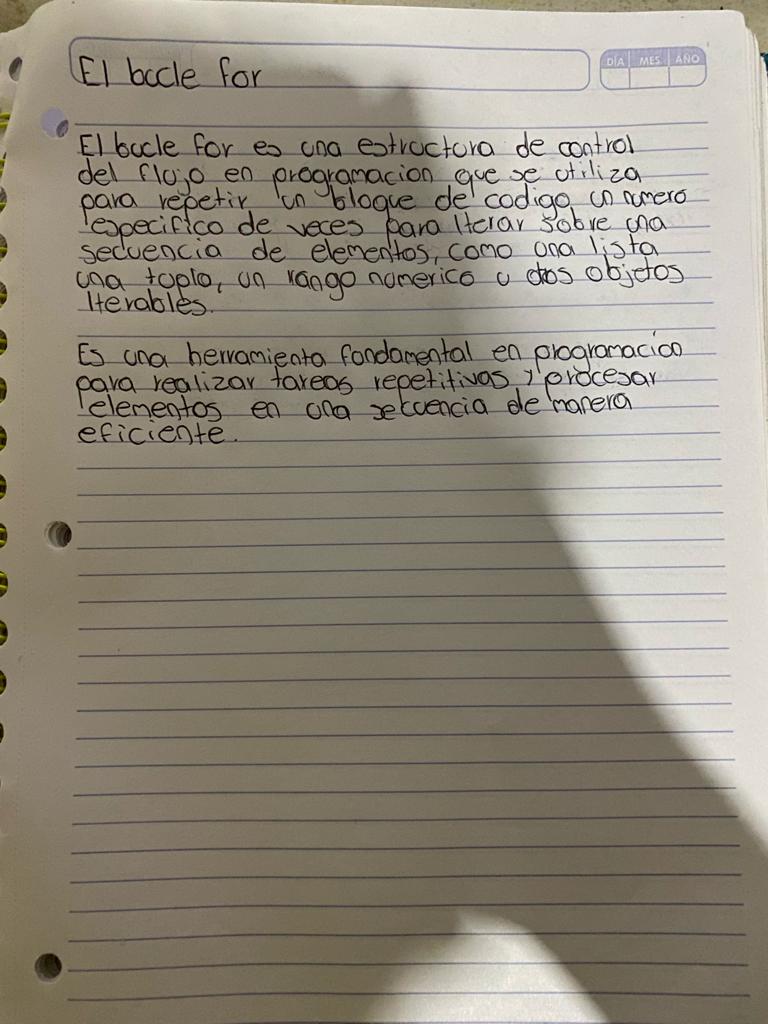 El bucle for
DÍA MES AÑO
El bucle for es una estructura de control
del flujo en programacion que se utiliza
para repetir un bloque de codigo un numero
especifico de veces para Iterar sobre una
secuencia de elementos, como una lista
una tupla, un rango numerico u otros objetos
Iterables.
Es una herramienta fundamental en programación
para realizar tareas repetitivas y procesar
elementos en una secuencia de manera
eficiente.